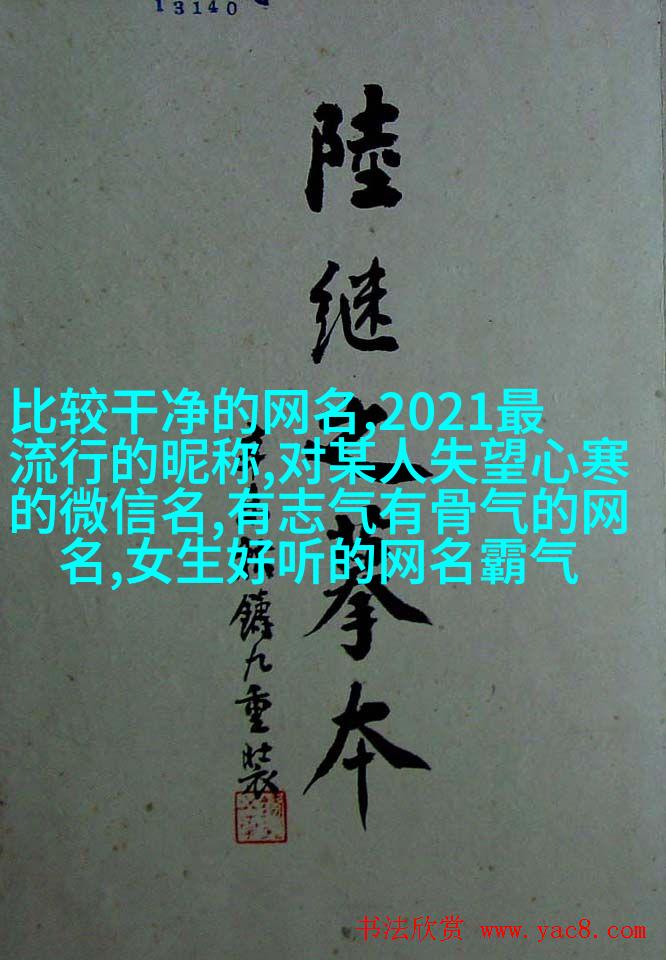 13140
陸继之摹本
鑄九重裝
比较干净的网名,2021最
流行的昵称,对某人失望心寒
的微信名,有志气有骨气的网
名,女生好听的网名霸气
书法欣赏 www.yac8.com